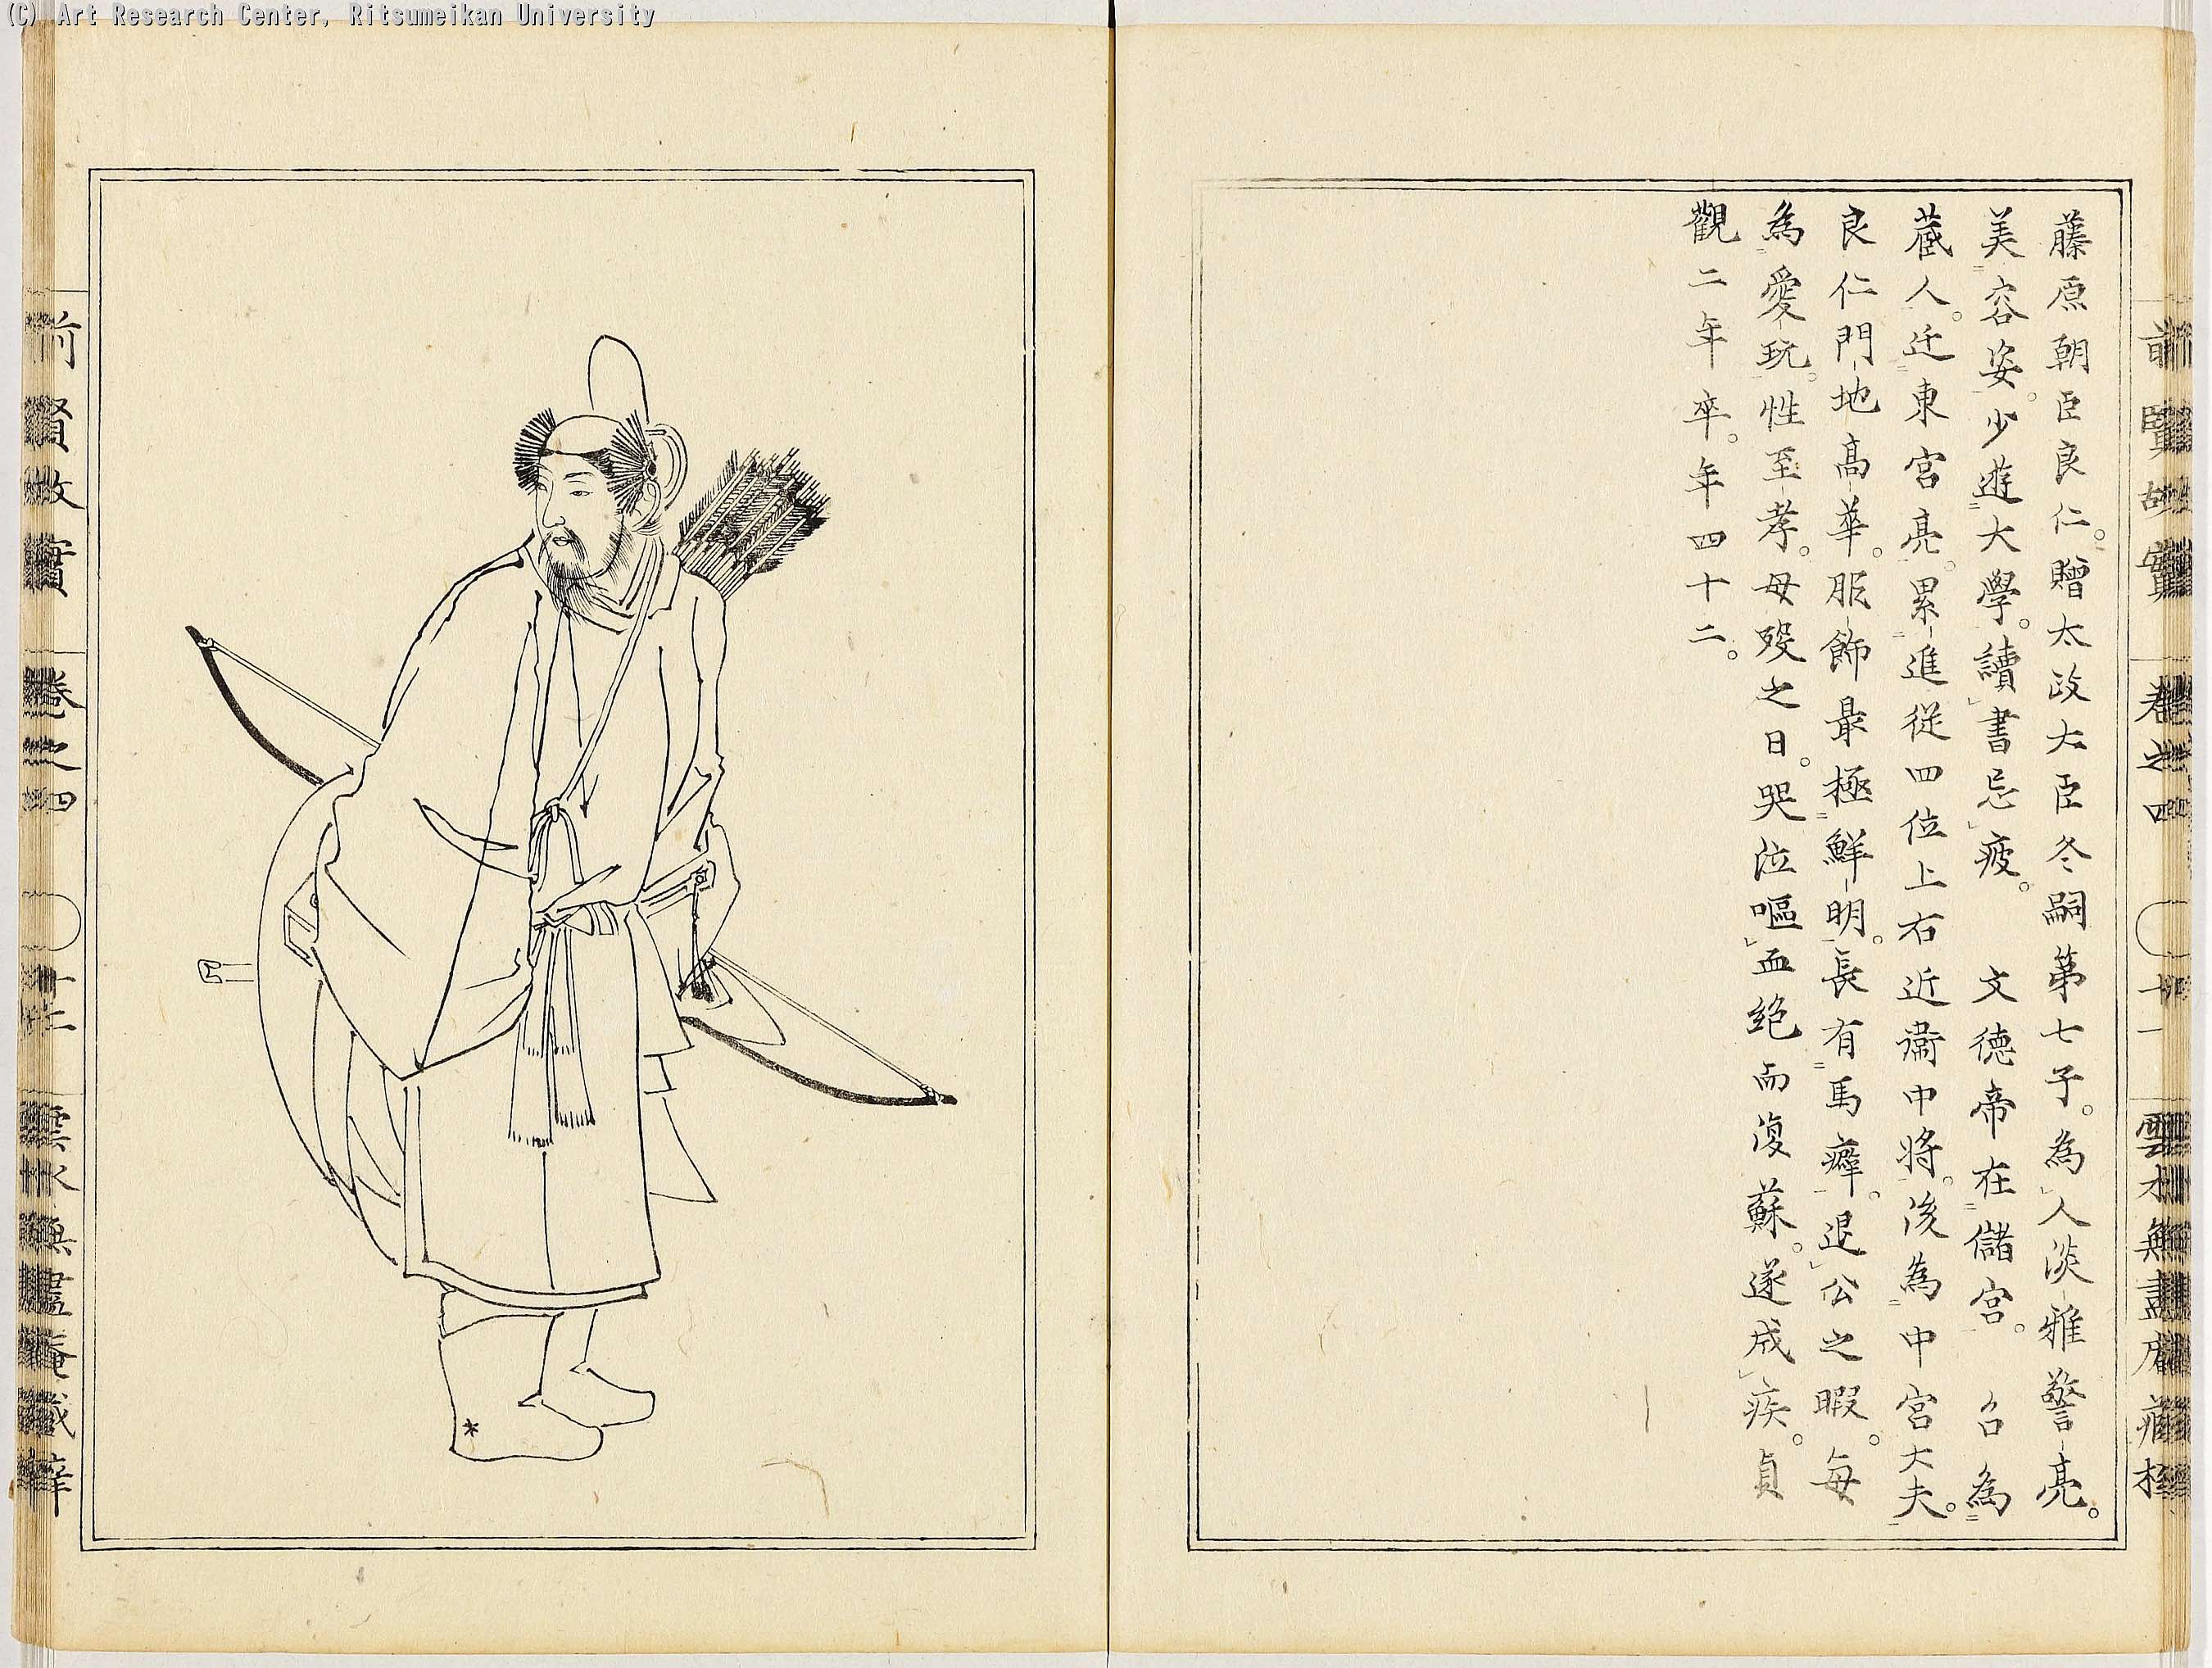 (C) Art Research Center, Ritsumeikan University
前賢故實 卷之四 十一 雲水無盡庵藏梓
藤原朝臣良仁。贈太政大臣冬嗣第七子。為人淡雅警亮。
美容姿。少遊大學。讀書忘疲。 文德帝在儲宮。 召為
蔵人。迁東宮亮。累進從四位上右近衛中將。後為中宮大夫。
良仁門地高華。服飾最極鮮明。長有馬癖。退公之暇。每
為愛玩。性至孝。母歿之日。哭泣嘔血絶而復蘇。遂成疾。貞
觀二年卒。年四十二。
前賢故實 卷之四 十二 雲水無盡庵藏梓